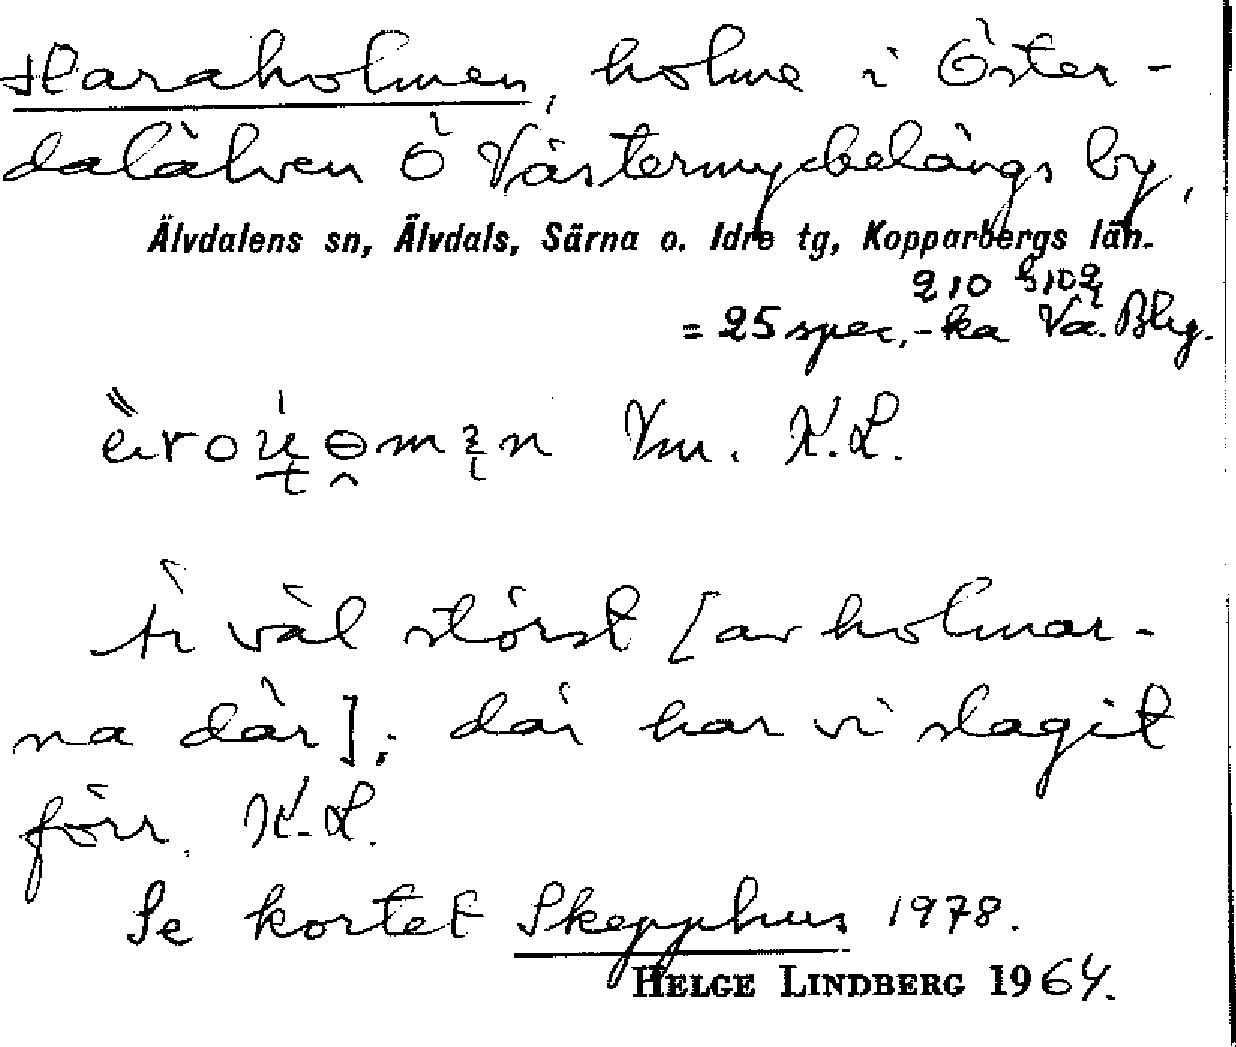 Haraholmen, holme i Öster-
dalälven Ö Västermyckelängs by,
Älvdalens sn, Älvdals, Särna o. Idre tg, Kopparbergs län.
= 25 spec,-ka Vä. Blg.
Vm. K.L.
Är väl störst [av holmar-
na där]; där har vi slagit
förr. K.L.
Se kortet Skepphus 1978.
HELGE LINDBERG 1964.